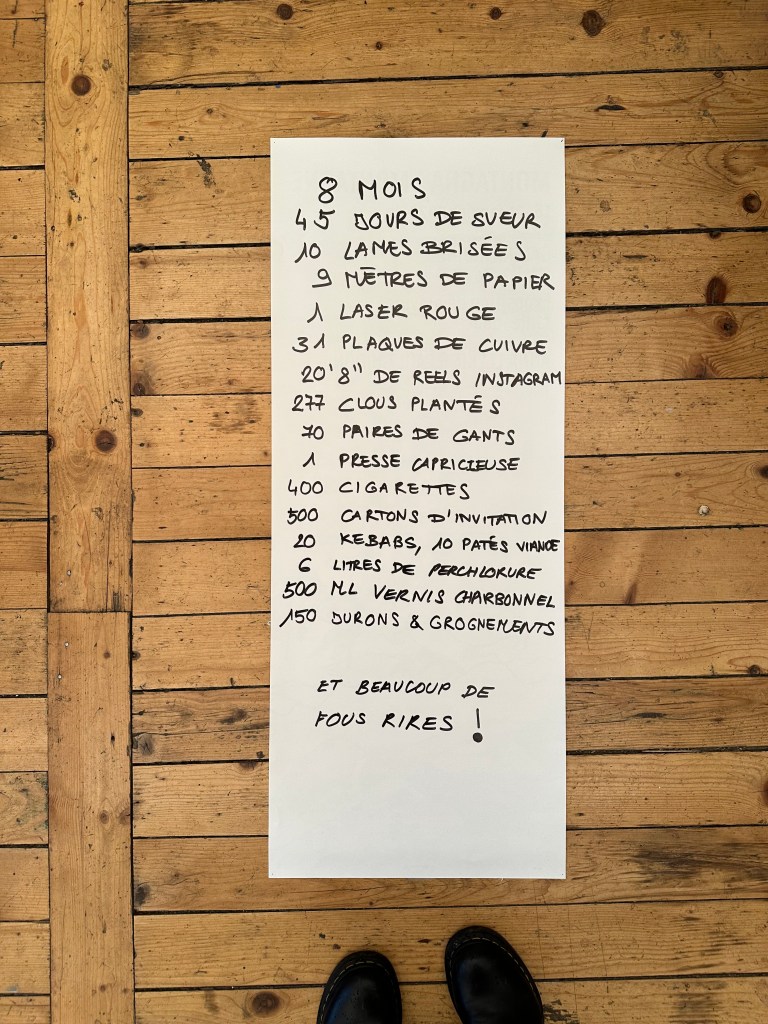 8 MOIS
45 JOURS DE SUEUR
10 LAMES BRISÉES
9 MÈTRES DE PAPIER
1 LASER ROUGE
31 PLAQUES DE CUIVRE
20'8" DE REELS INSTAGRAM
277 CLOUS PLANTÉS
70 PAIRES DE GANTS
1 PRESSE CAPRICIEUSE
400 CIGARETTES
500 CARTONS D'INVITATION
20 KEBABS, 10 PATÉS VIANDE
6 LITRES DE PERCHLORURE
500 ML VERNIS CHARBONNEL
150 JURONS & GROGNEMENTS
ET BEAUCOUP DE
FOUS RIRES !